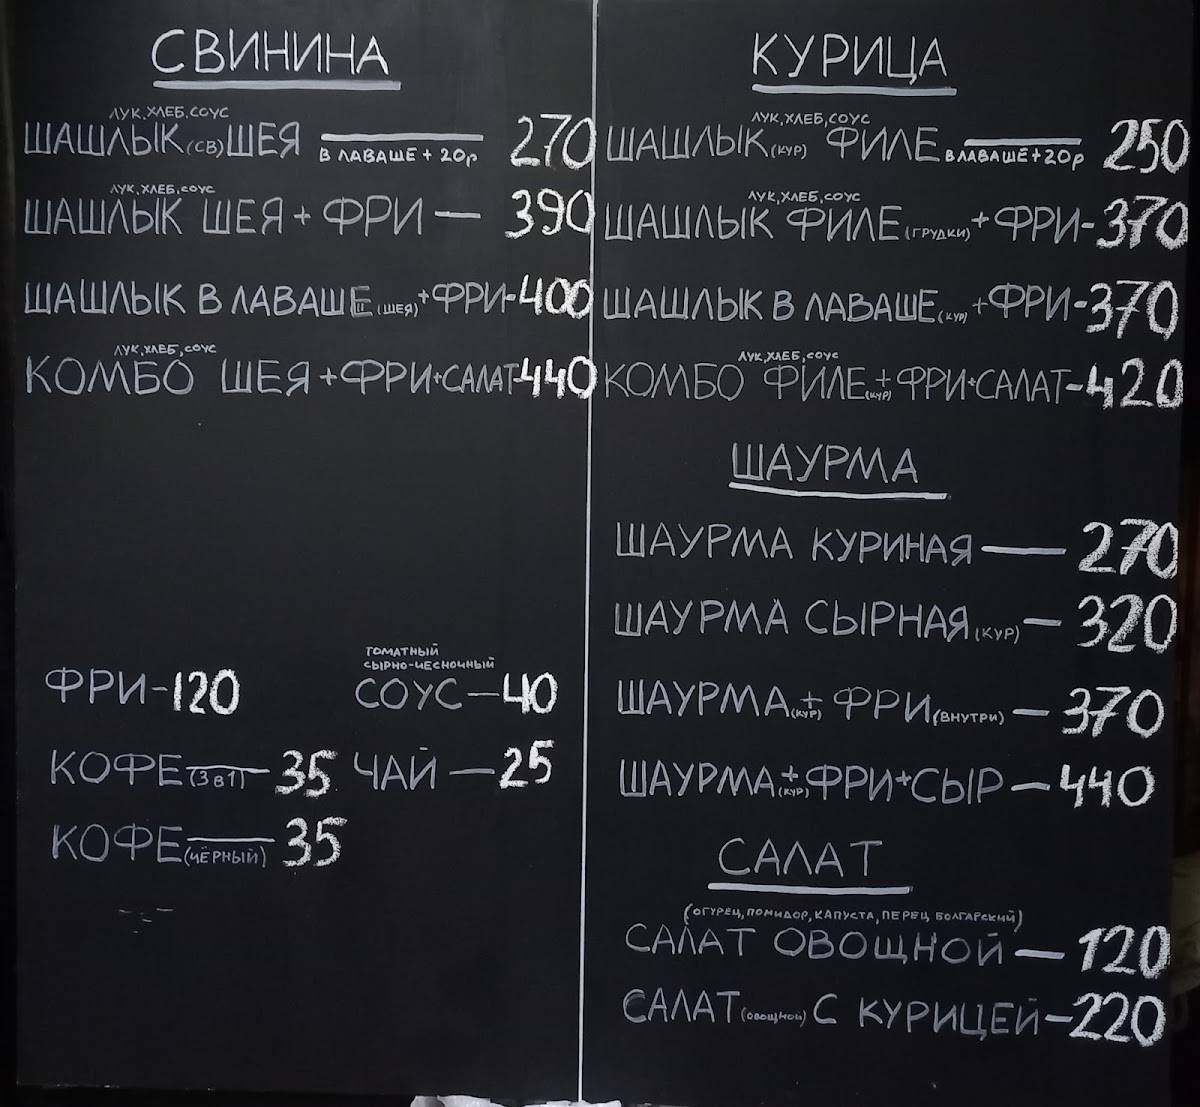 СВИНИНА
ЛУК, ХЛЕБ, СОУС
ШАШЛЫК (СВ) ШЕЯ В ЛАВАШЕ + 20р 270
ЛУК, ХЛЕБ, СОУС
ШАШЛЫК ШЕЯ + ФРИ — 390
ШАШЛЫК В ЛАВАШЕ (ШЕЯ) + ФРИ - 400
ЛУК, ХЛЕБ, СОУС
КОМБО ШЕЯ + ФРИ + САЛАТ - 440
ФРИ - 120
ТОМАТНЫЙ
СЫРНО-ЧЕСНОЧНЫЙ
СОУС — 40
КОФЕ (3 в 1) — 35
ЧАЙ — 25
КОФЕ (ЧЁРНЫЙ) — 35
КУРИЦА
ЛУК, ХЛЕБ, СОУС
ШАШЛЫК (КУР) ФИЛЕ В ЛАВАШЕ + 20р 250
ЛУК, ХЛЕБ, СОУС
ШАШЛЫК ФИЛЕ (ГРУДКИ) + ФРИ - 370
ШАШЛЫК В ЛАВАШЕ (КУР) + ФРИ - 370
ЛУК, ХЛЕБ, СОУС
КОМБО ФИЛЕ (КУР) + ФРИ + САЛАТ - 420
ШАУРМА
ШАУРМА КУРИНАЯ — 270
ШАУРМА СЫРНАЯ (КУР) — 320
ШАУРМА (КУР) + ФРИ (ВНУТРИ) — 370
ШАУРМА (КУР) + ФРИ + СЫР — 440
САЛАТ
(ОГУРЕЦ, ПОМИДОР, КАПУСТА, ПЕРЕЦ БОЛГАРСКИЙ)
САЛАТ ОВОЩНОЙ — 120
САЛАТ (ОВОЩНОЙ) С КУРИЦЕЙ — 220